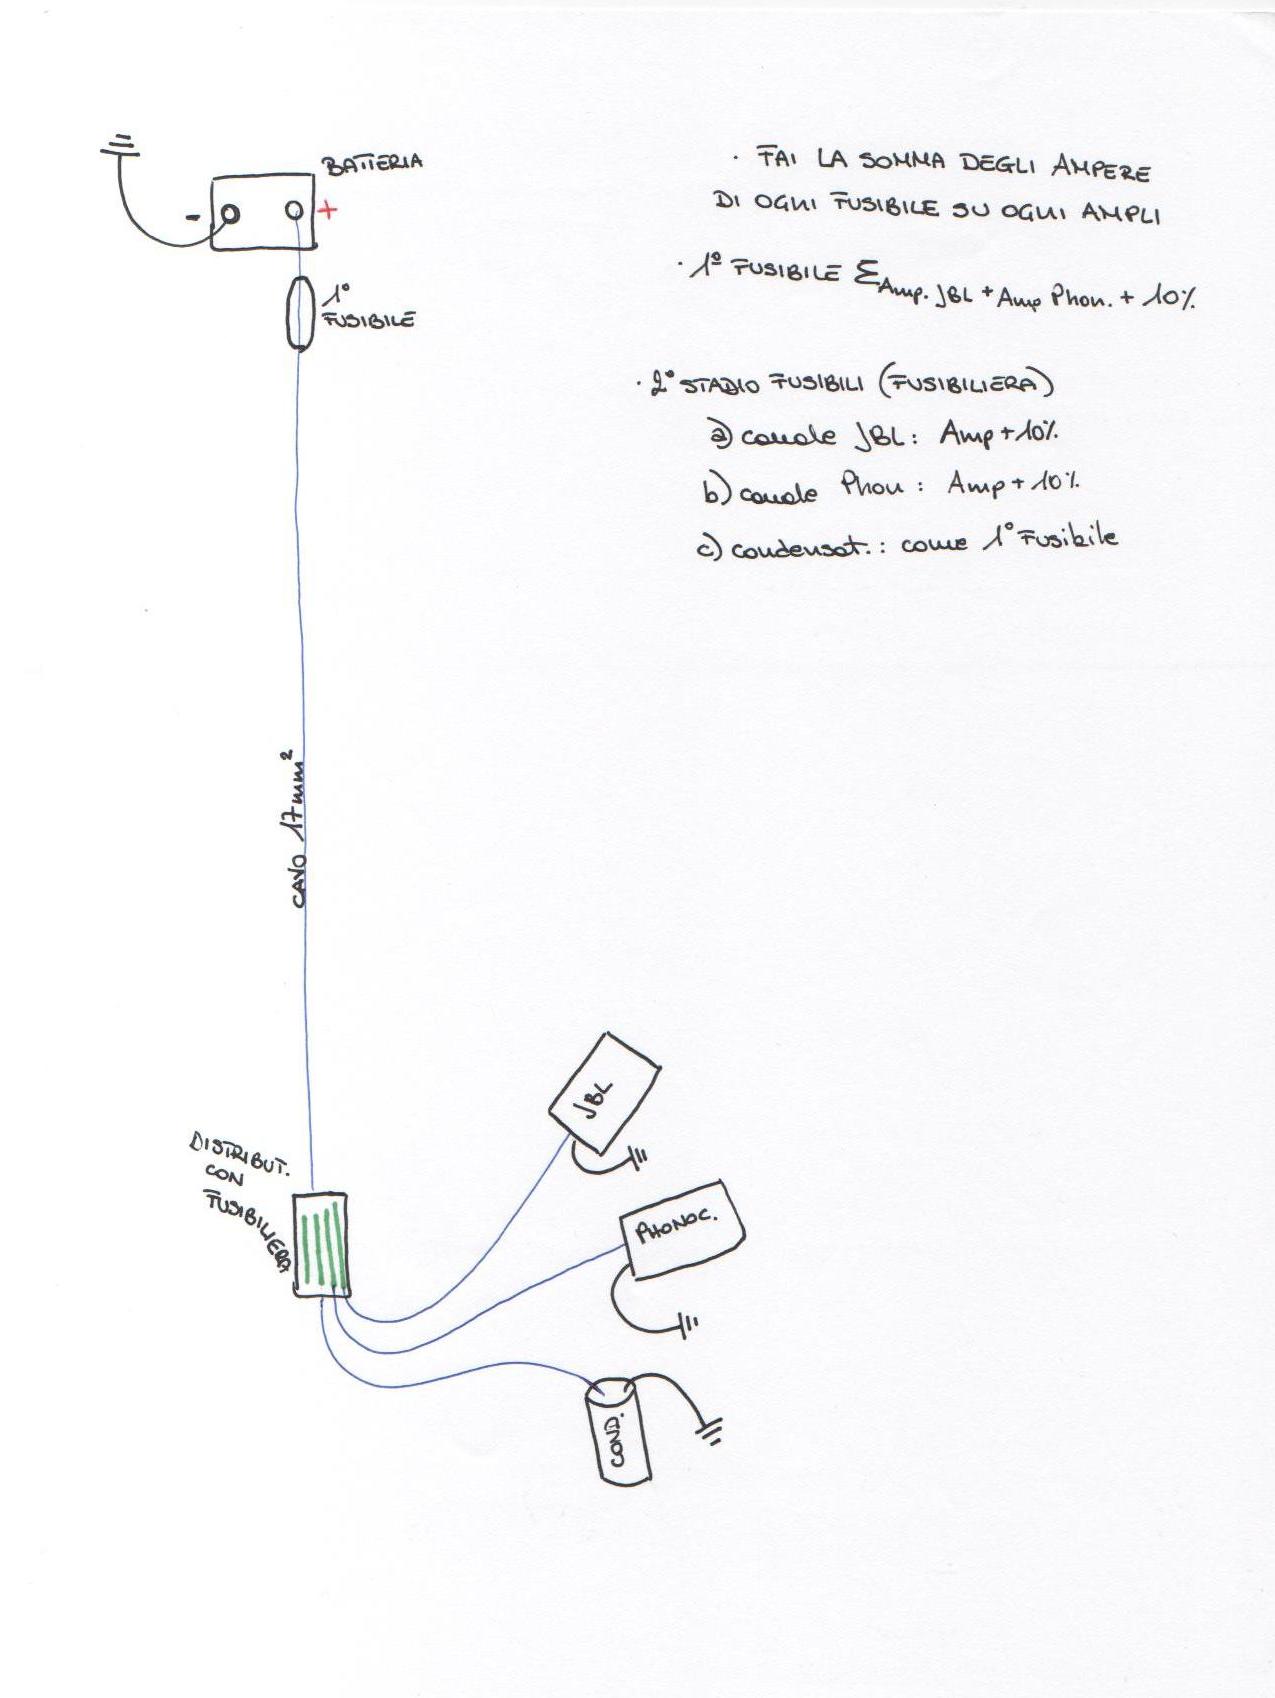 BATTERIA
- +
1° FUSIBILE
CAVO 17mm²
DISTRIBUT.
CON
FUSIBILIERA
JBL
PHONOC.
COND.
· FAI LA SOMMA DEGLI AMPERE
DI OGNI FUSIBILE SU OGNI AMPLI
· 1° FUSIBILE Σ Amp. JBL + Amp Phon. + 10%
· 2° STADIO FUSIBILI (FUSIBILIERA)
a) canale JBL: Amp + 10%
b) canale Phon : Amp + 10%
c) condensat.: come 1° Fusibile